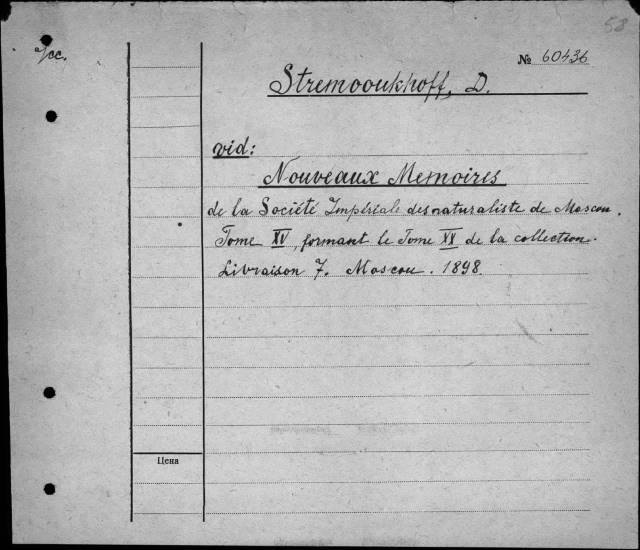 58
№ 60436
Stremooukhoff, D.
vid:
Nouveaux Memoires
de la Société Impériale des naturaliste de Moscou.
Tome XV, formant le Tome XX de la collection.
Livraison 7. Moscou. 1898.
Цена